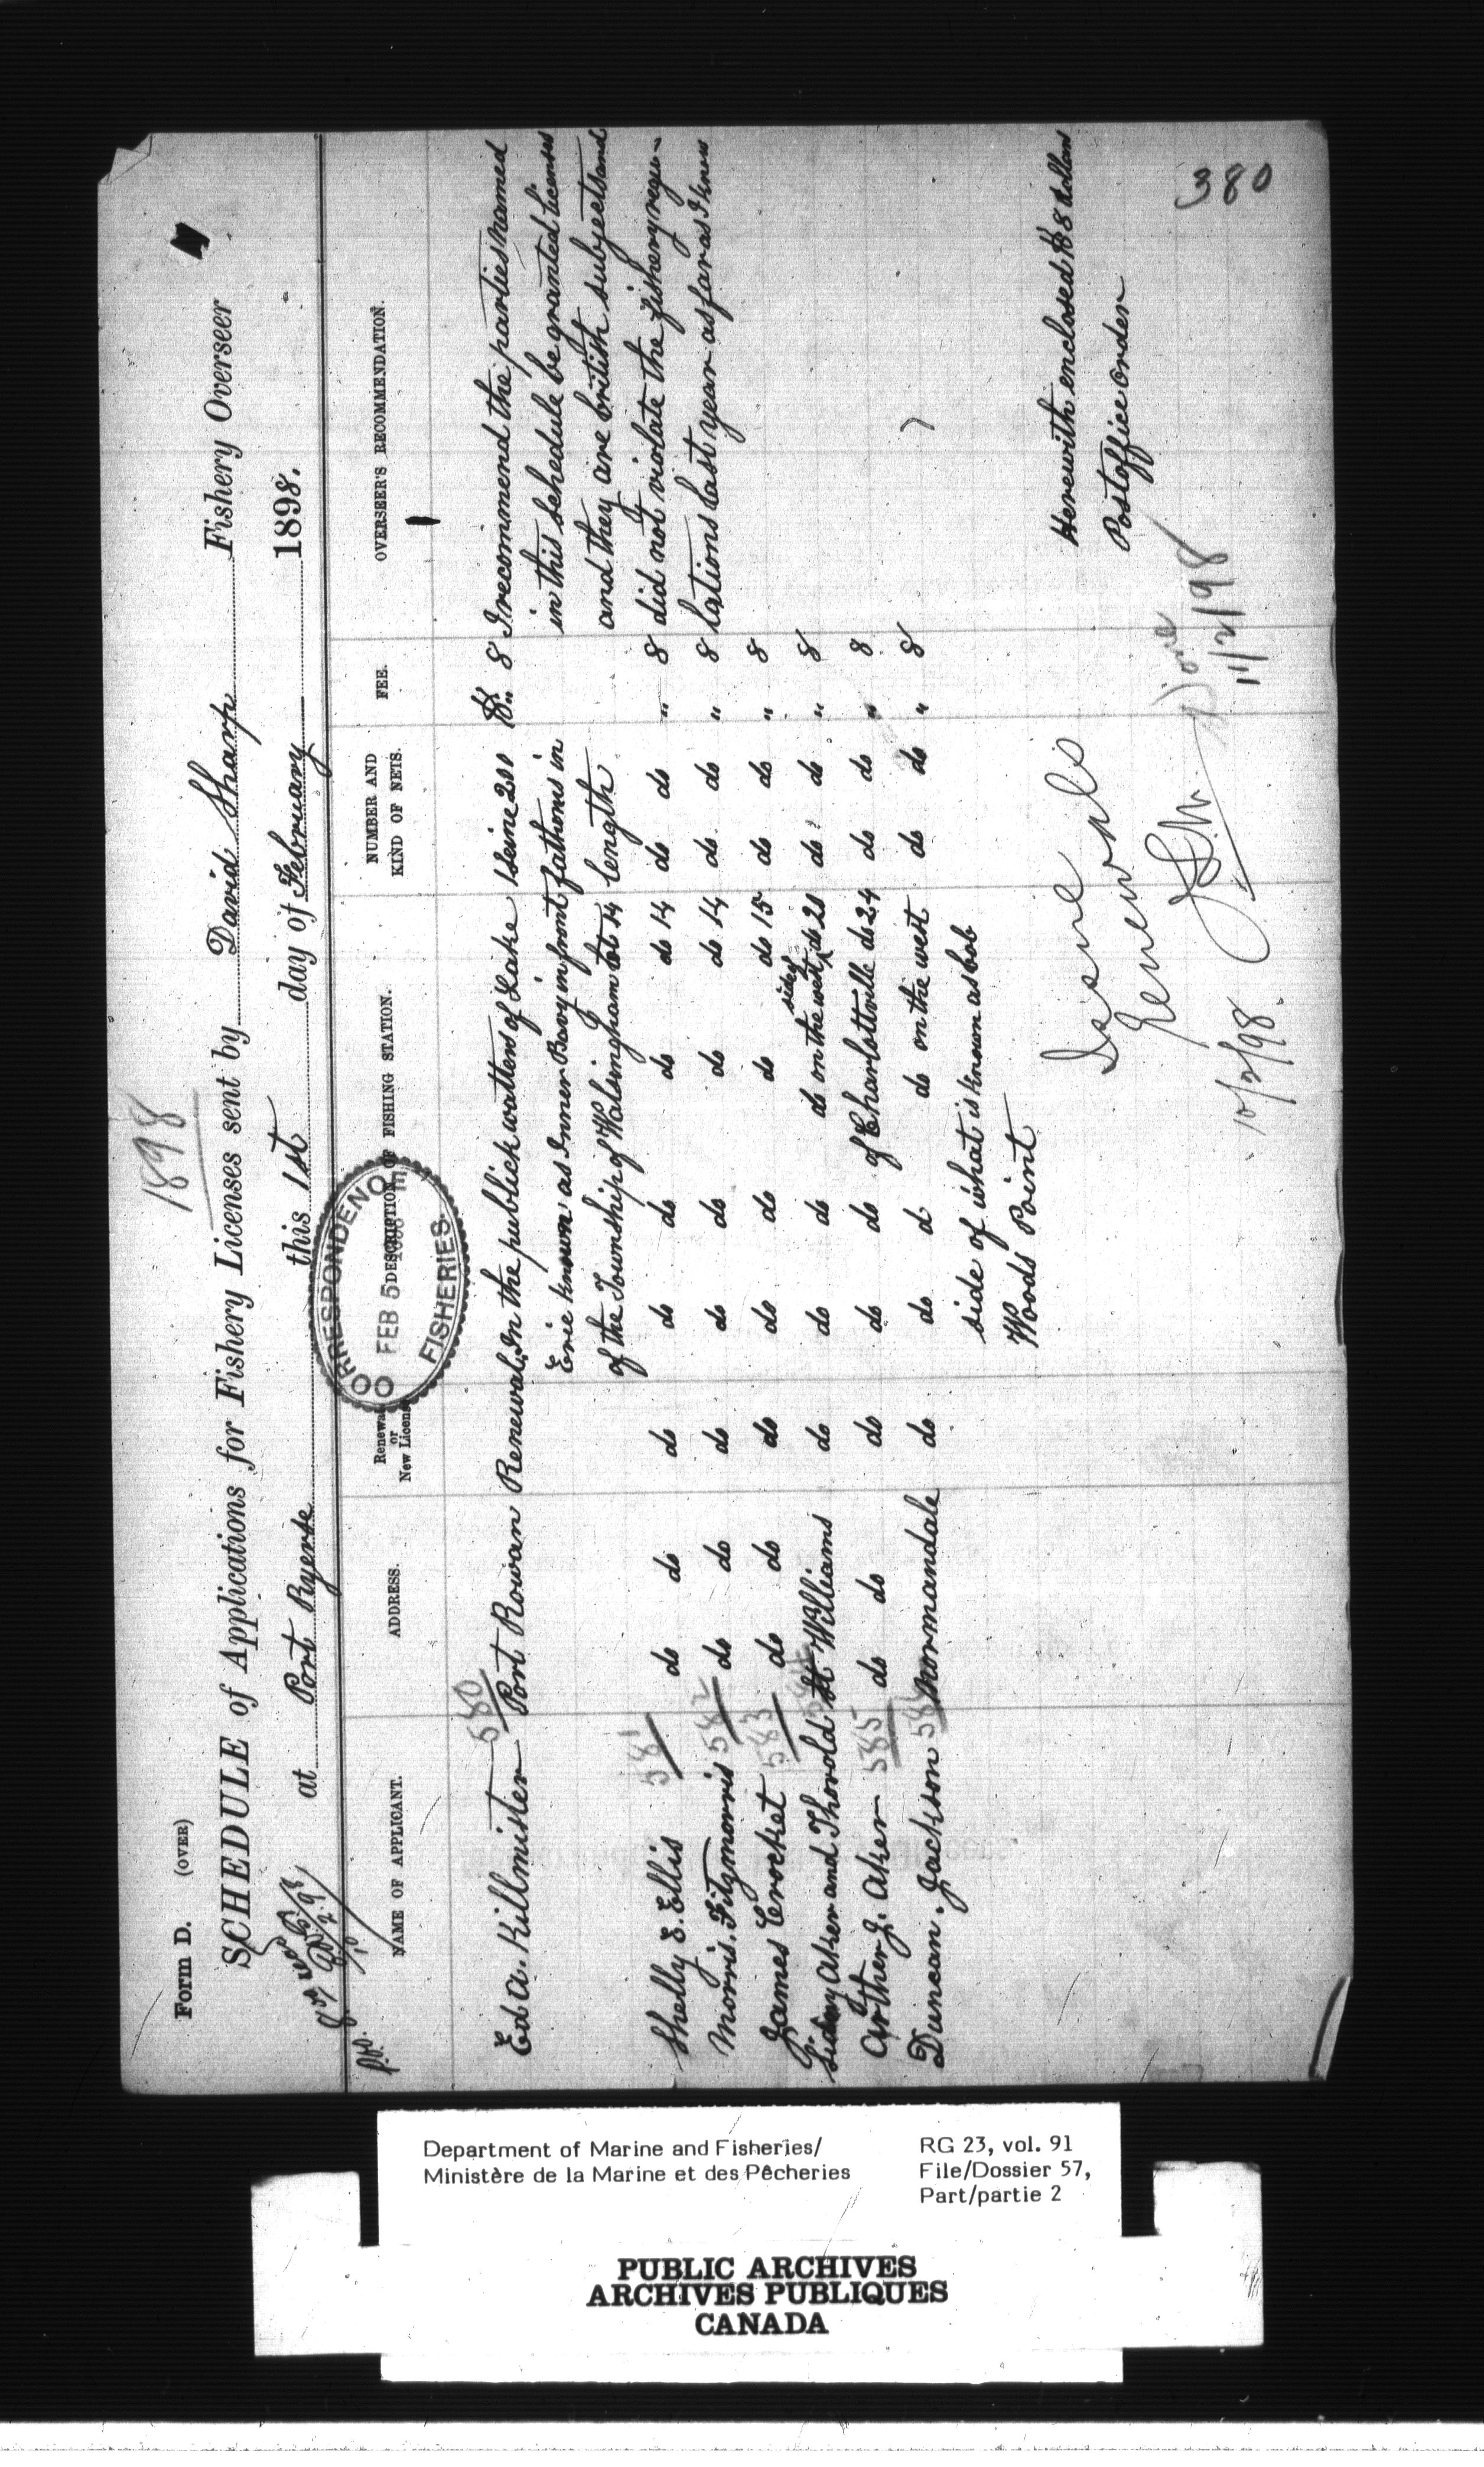 1898
Form D. (OVER)
SCHEDULE of Applications for Fishery Licenses sent by David Sharp Fishery Overseer
at Port Ryerse this 1st day of February 1898.
CORRESPONDENCE
FEB 5
FISHERIES.
NAME OF APPLICANT. ADDRESS. Renewal or New License DESCRIPTION OF FISHING STATION. NUMBER AND KIND OF NETS. FEE. OVERSEER'S RECOMMENDATION.
580
Ed A. Killmister Port Rowan Renewal In the publick watters of Lake 1 seine 200 $ 8 I recommend the parties named
Erie known as Inner Bay in front fathoms in in this schedule be granted licenses
of the Township of Walsingham lot 14 length and they are british subjects and
Shelly E. Ellis 581 do do do do do do do 14 do do " 8 did not violate the fishery regu-
Morris. Fitzmorris 582 do do do do do do do 14 do do " 8 lations last year as far as I know
James Crocket 583 do do do do do do do 15 do do " 8
Sidney Aker and Thorold St Williams do do do do on the west side of do 20 do do " 8
584
Arther J. Aker 585 do do do do do of Charlottville do 24 do do " 8
Duncan. Jackson 586 Normandale do do d do on the west do do " 8
side of what is known as bob
Woods Point
Herewith enclosed $8 dollars
Postoffice order
Issue
renewals
10/2/98.
Done
11/2/98
380
Department of Marine and Fisheries/
Ministère de la Marine et des Pêcheries
RG 23, vol. 91
File/Dossier 57,
Part/partie 2
PUBLIC ARCHIVES
ARCHIVES PUBLIQUES
CANADA